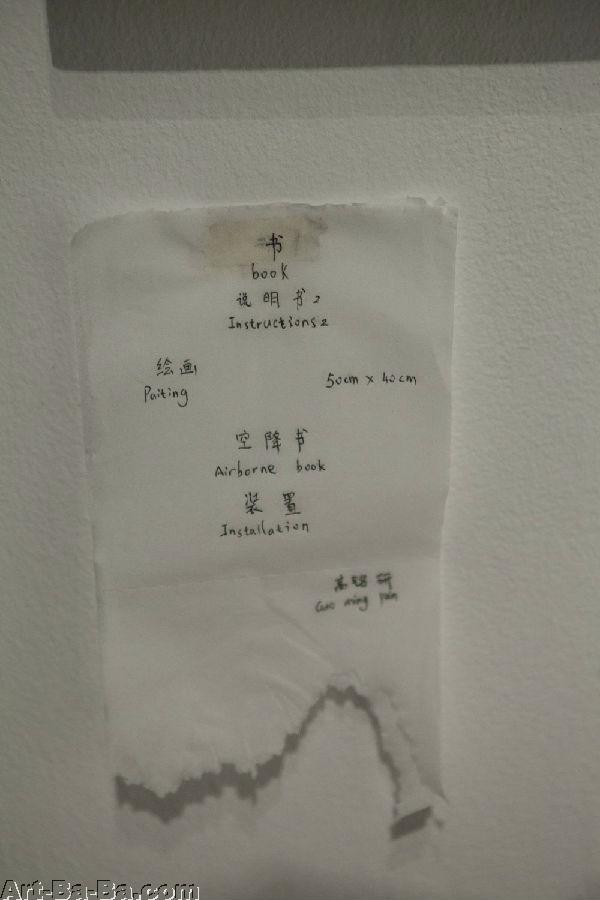 书
book
说明书2
Instructions2
绘画
Paiting
50cm x 40cm
空降书
Airborne book
装置
Installation
高铭研
Guo ming yan
Art-Ba-Ba.com